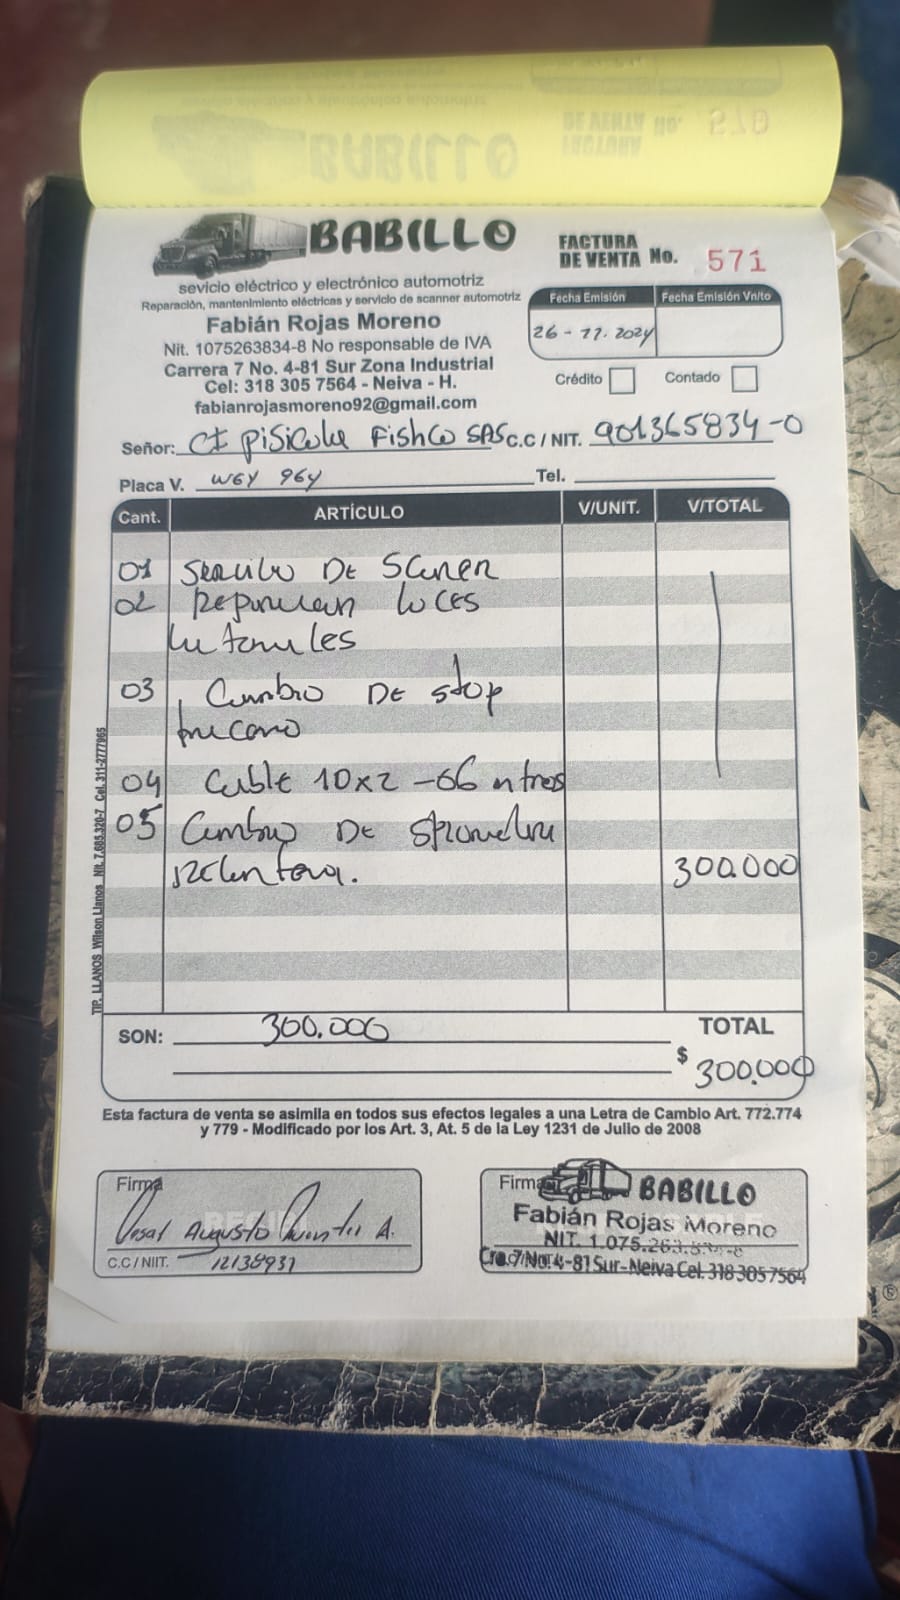 BABILLO
sevicio eléctrico y electrónico automotriz
Reparación, mantenimiento eléctricas y servicio de scanner automotriz
Fabián Rojas Moreno
Nit. 1075263834-8 No responsable de IVA
Carrera 7 No. 4-81 Sur Zona Industrial
Cel: 318 305 7564 - Neiva - H.
fabianrojasmoreno92@gmail.com
FACTURA
DE VENTA No. 571
Fecha Emisión Fecha Emisión Vn/to
26-11-2024
Crédito Contado
Señor: CI Pisicola Fishco SAS C.C / NIT. 901365834-0
Placa V. WGY 964 Tel.
Cant. ARTÍCULO V/UNIT. V/TOTAL
01 Servicio DE Scaner
02 Reparacion luces
laterales
03 Cambio DE stop
04 Cable 10x2 -06 mtros
05 Cambio DE
300.000
SON: 300.000 TOTAL
$ 300.000
Esta factura de venta se asimila en todos sus efectos legales a una Letra de Cambio Art. 772.774
y 779 - Modificado por los Art. 3, At. 5 de la Ley 1231 de Julio de 2008
Firma
Cesar Augusto Quintero A.
C.C / NIIT. 12138931
Firma
BABILLO
Fabián Rojas Moreno
NIT. 1.075.263.
Cra. 7 No. 4-81 Sur-Neiva Cel. 318 305 7564
TIP. LLANOS Wilson Llanos Nit. 7.685.320-7 Cel. 311-2777965